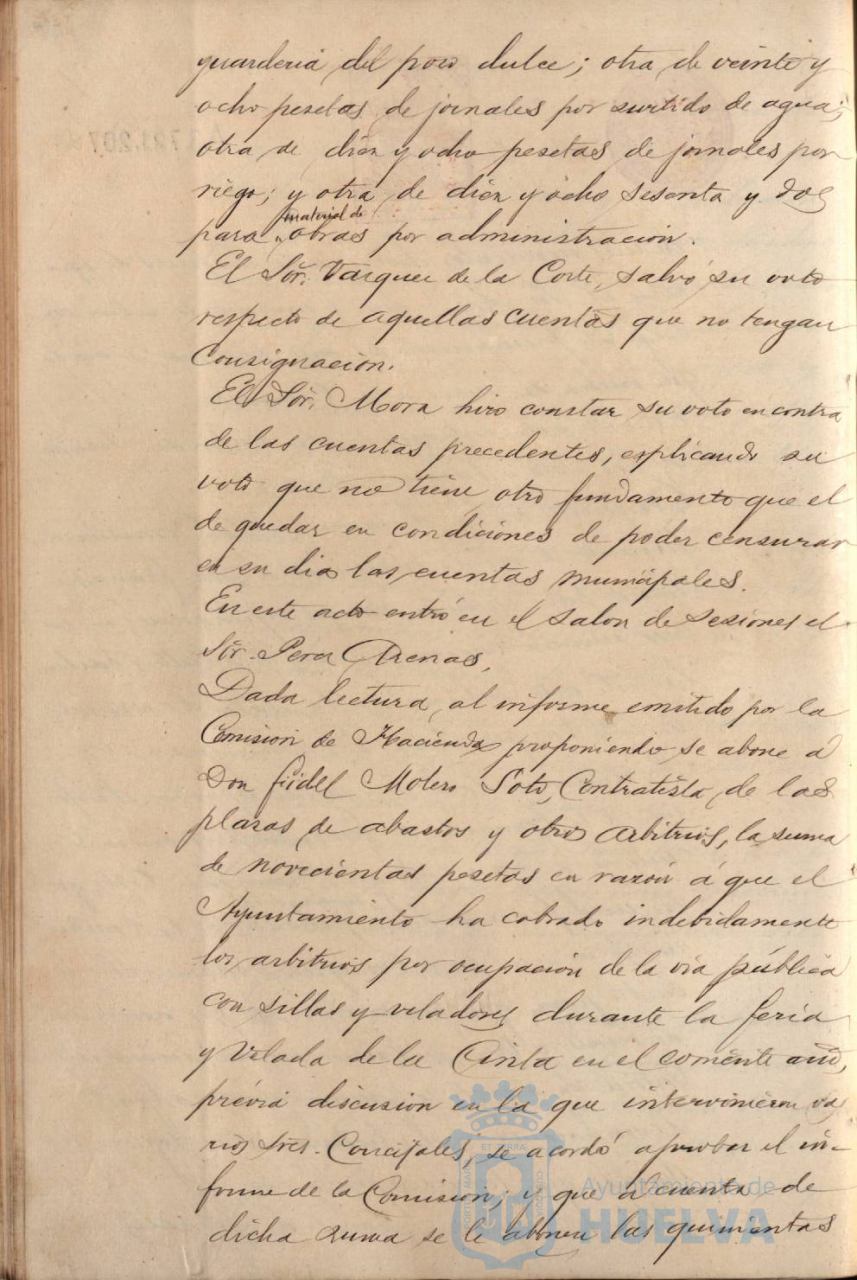 guarderia del pozo dulce; otra de veinte y
ocho pesetas de jornales por surtido de agua;
otra de diez y ocho pesetas de jornales por
riego; y otra de diez y ocho sesenta y dos
material de
para obras por administración.
El Sor. Vazquez de la Corte, salvó su voto
respecto de aquellas cuentas que no tengan
consignación.
El Sor. Mora hizo constar su voto en contra
de las cuentas precedentes, esplicando su
voto que no tiene otro fundamento que el
de quedar en condiciones de poder censurar
en su dia las cuentas municipales.
En este acto entró en el salon de sesiones el
Sor. Perez Arenas.
Dada lectura al informe emitido por la
Comision de Hacienda proponiendo se abone á
Don Fidel Molero Soto, Contratista de las
plazas de abastos y otros arbitrios, la suma
de novecientas pesetas en razón á que el
Ayuntamiento ha cobrado indebidamente
los arbitrios por ocupación de la via pública
con sillas y veladores durante la feria
y Velada de la Cinta en el corriente año,
prévia discusion en la que intervinieron va
rios Sres. Concejales, se acordó aprobar el in-
forme de la Comision; y que á cuenta de
dicha suma se le abonen las quinientas
Ayuntamiento de
HUELVA